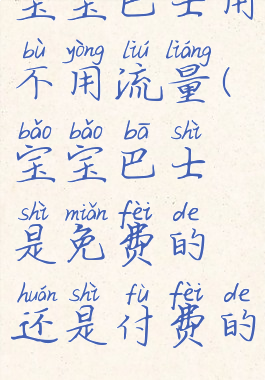 宝宝巴士用
bù yòng liú liáng
不用流量(
bǎo bǎo bā shì
宝宝巴士
shì miǎn fèi de
是免费的
huán shì fù fèi de
还是付费的